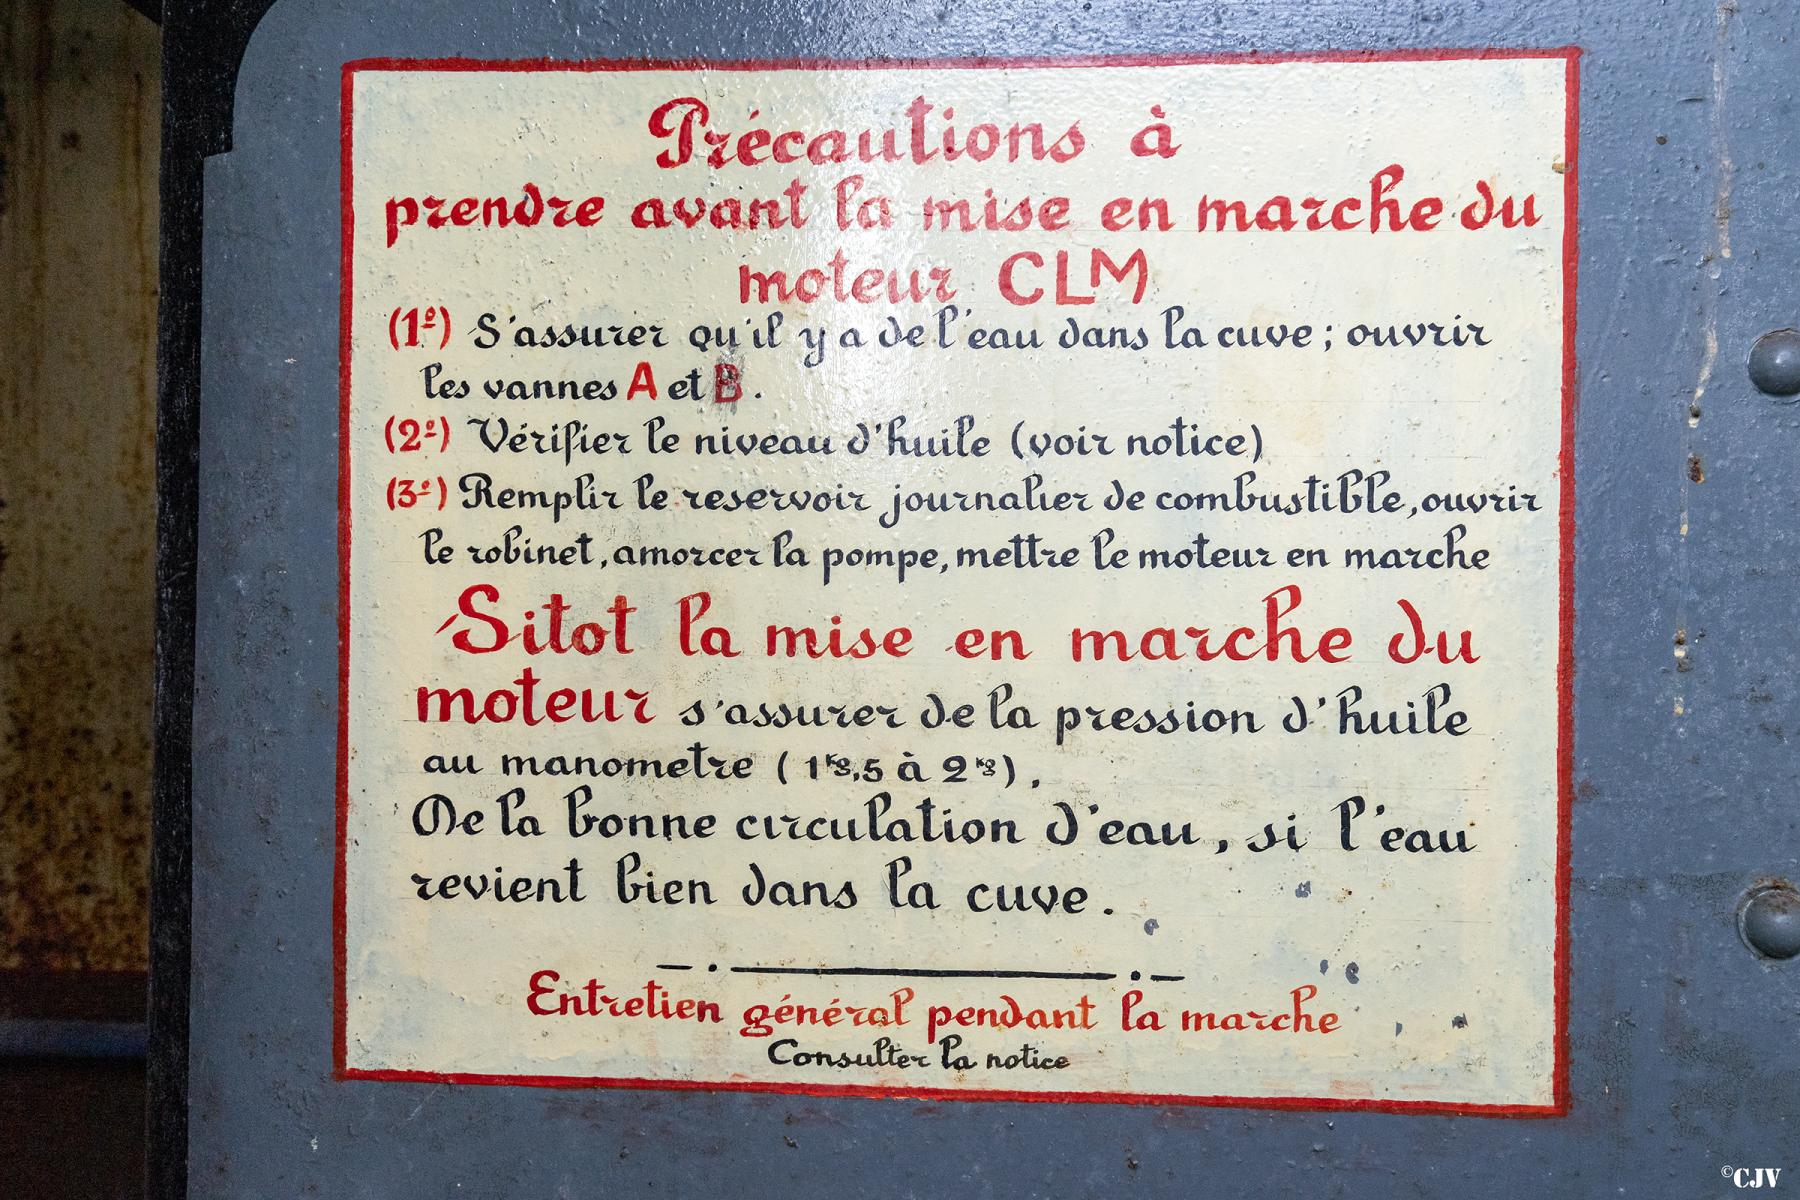 Précautions à
prendre avant la mise en marche du
moteur CLM
(1º) S'assurer qu'il y a de l'eau dans la cuve ; ouvrir
les vannes A et B .
(2º) Vérifier le niveau d'huile (voir notice)
(3º) Remplir le reservoir journalier de combustible, ouvrir
le robinet, amorcer la pompe, mettre le moteur en marche
Sitot la mise en marche du
moteur s'assurer de la pression d'huile
au manometre ( 1 kg,5 à 2 kg ) .
De la bonne circulation d'eau , si l'eau
revient bien dans la cuve .
Entretien général pendant la marche
Consulter la notice
©CJV